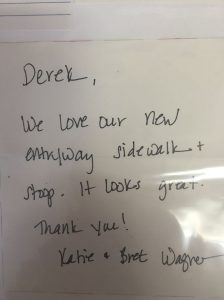 Derek,
We love our new
entryway sidewalk +
stoop. It looks great.
Thank you!
Katie & Bret Wagner